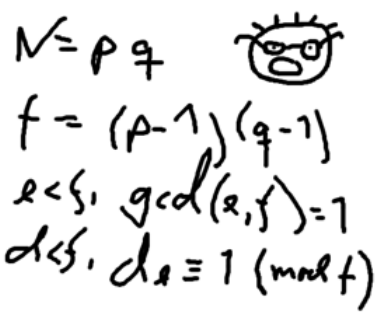 N = p q
f = (p-1)(q-1)
e<f, gcd(e,f)=1
d<f, de ≡ 1 (mod f)